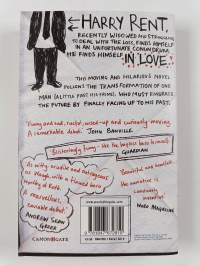 HARRY RENT,
RECENTLY WIDOWED AND STRUGGLING
TO DEAL WITH THE LOSS, FINDS HIMSELF
IN AN UNFORTUNATE CONUNDRUM.
HE FINDS HIMSELF
IN LOVE.
THIS MOVING AND HILARIOUS NOVEL
FOLLOWS THE TRANSFORMATION OF ONE
MAN (A LITTLE PAST HIS PRIME) WHO MUST NAVIGATE
THE FUTURE BY FINALLY FACING UP TO HIS PAST.
Funny and sad, rueful, mixed-up and curiously moving.
A remarkable debut. JOHN BANVILLE
Blisteringly funny
GUARDIAN
As witty, erudite and outrageous
as Waugh, with a finessed hero
worthy of Roth.
A marvellous,
enviable debut.
ANDREW SEAN
GREER
Beautiful and heartfelt,
the narrative is
constantly
inventive
WORD MAGAZINE
CANONGATE